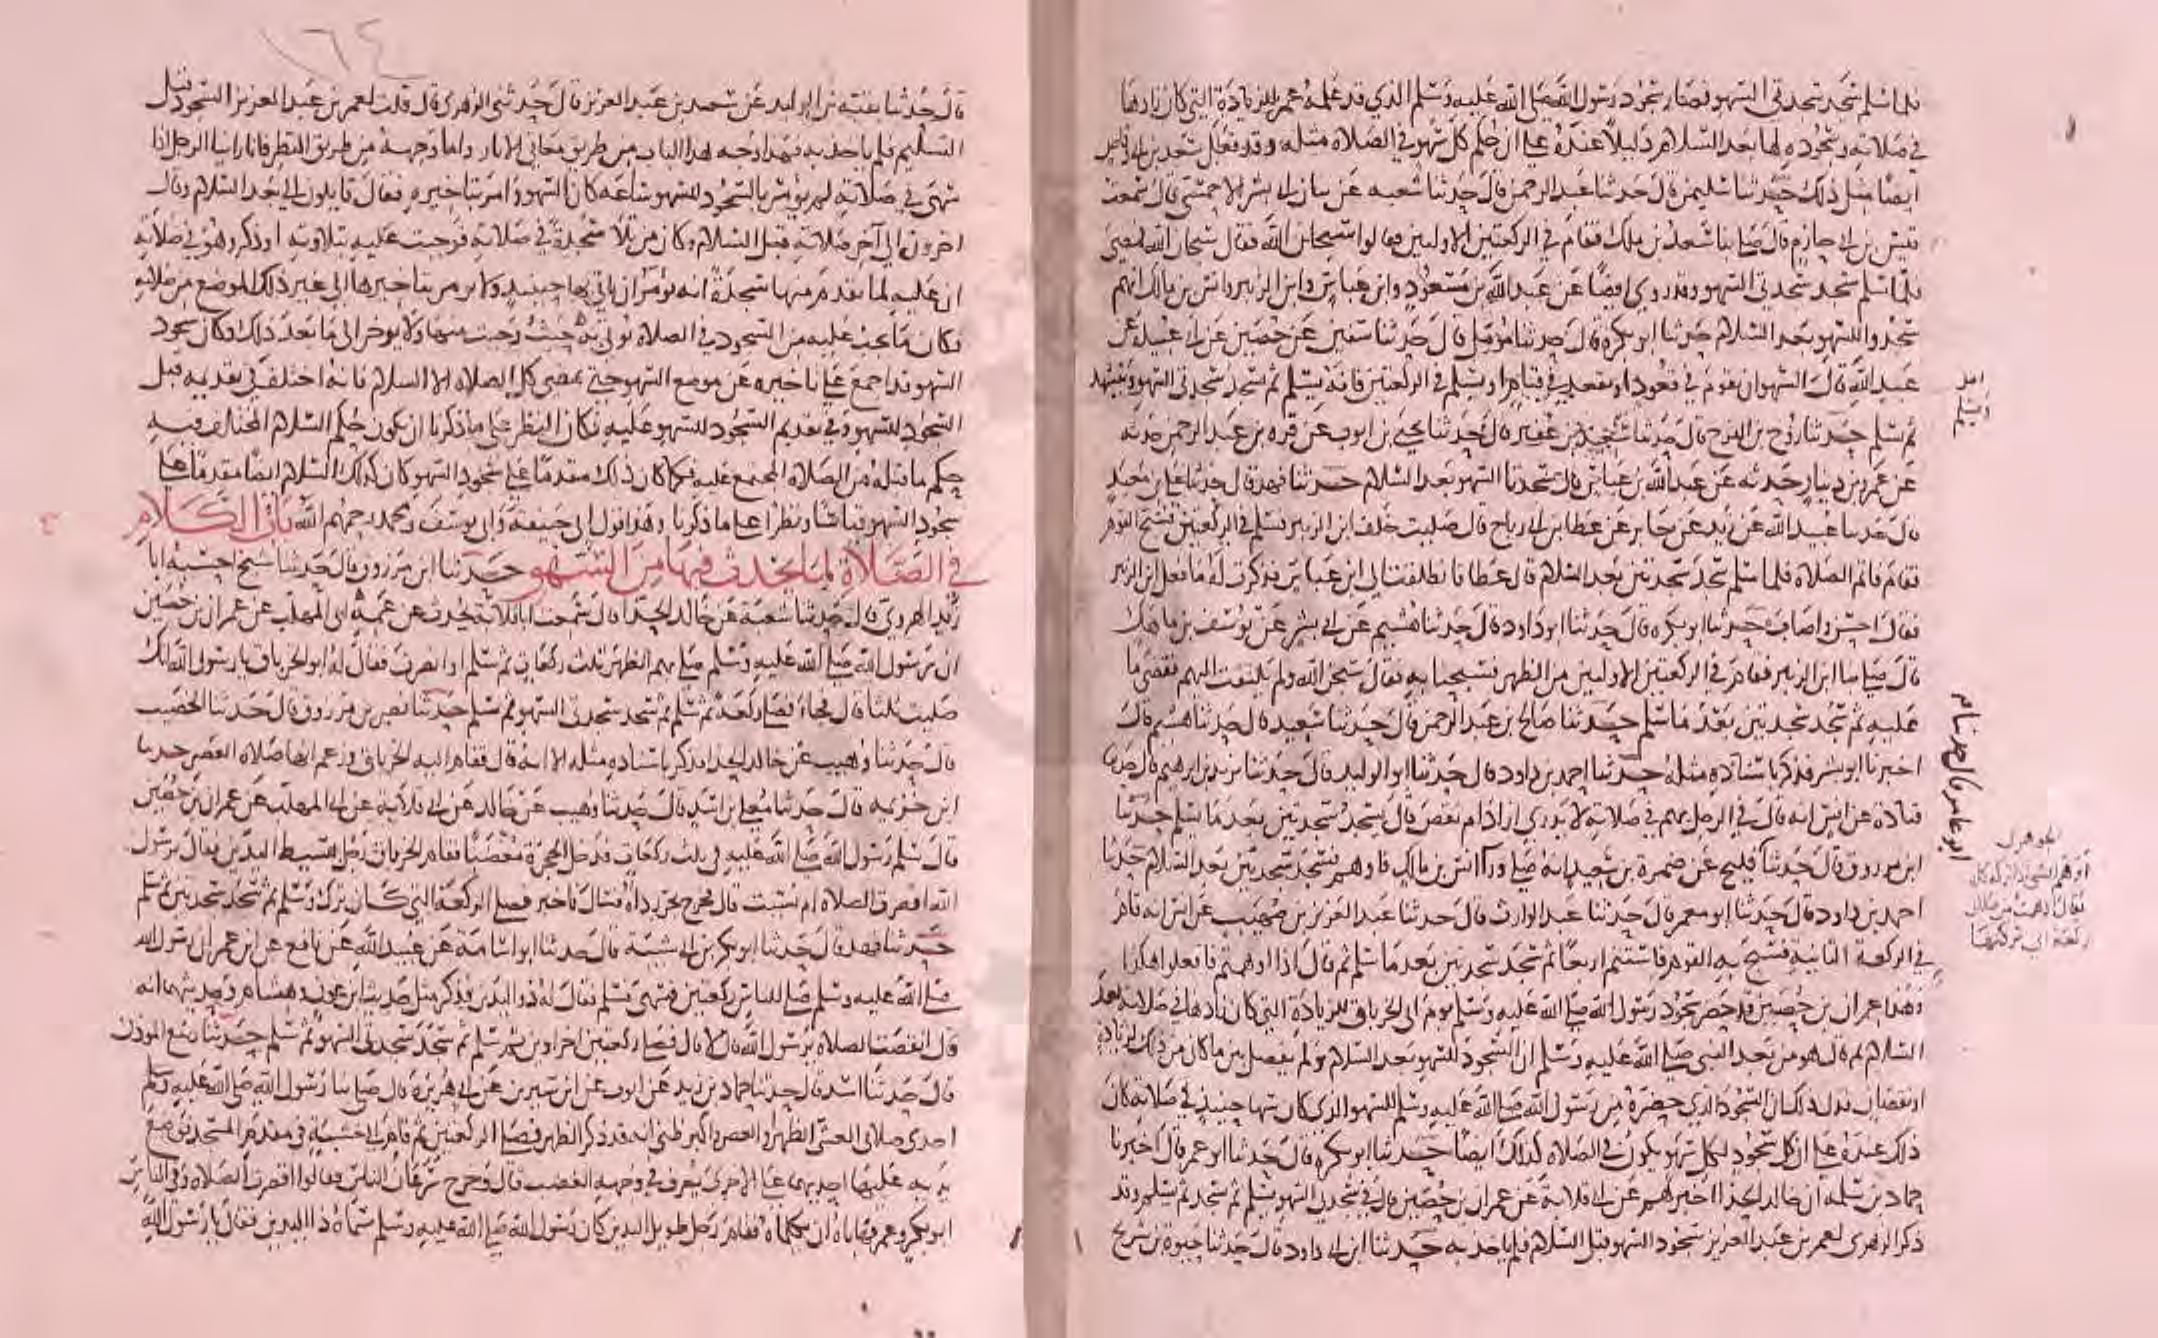 فلما سلم سجد سجدتي السهو فصار سجود رسول الله صلى الله عليه وسلم الذي قد علمه عمر للزيادة التي كان زادها
في صلاته وسجوده لها بعد السلام دليلا عنده على ان حكم كل سهو في الصلاه مثله وقد فعل سعد بن ابي وقاص
ايضا مثل ذلك حدثنا سليمن قال حدثنا عبد الرحمن قال حدثنا شعبه عن بيان ابي بشر الاحمسي قال سمعت
قيس بن ابي حازم قال صلى بنا سعد بن ملك فقام في الركعتين الاوليين فقالوا سبحان الله فقال سبحان الله فمضى
فلما سلم سجد سجدتي السهو وقد روي ايضا عن عبد الله بن مسعود وابن عباس وابن الزبير وانس بن مالك انهم
سجدوا للسهو بعد السلام حدثنا ابو بكره قال حدثنا مؤمل قال حدثنا سفين عن خصيف عن ابي عبيدة عن
عبد الله قال السهو ان يقوم في قعود او يقعد في قيام او يسلم في الركعتين فانه يسلم ثم يسجد سجدتي السهو ويتشهد
ثم يسلم حدثنا روح بن الفرج قال حدثنا سعيد بن عفير قال حدثنا يحيى بن ايوب عن قره بن عبد الرحمن حدثه
عن عمرو بن دينار حدثه عن عبد الله بن عباس قال سجدتا السهو بعد السلام حدثنا فهد قال حدثنا علي بن معبد
قال حدثنا عبيد الله عن زيد عن جابر عن عطا بن ابي رباح قال صليت خلف ابن الزبير فسلم في الركعتين فسبح القوم
فقام فاتم الصلاه فلما سلم سجد سجدتين بعد السلام قال عطا فانطلقت الى ابن عباس فذكرت له ما فعل ابن الزبير
فقال احسن واصاب حدثنا ابو بكره قال حدثنا ابو داود قال حدثنا هشيم عن ابي بشر عن يوسف بن ماهك
قال صلى بنا ابن الزبير فقام في الركعتين الاوليين من الظهر فسبحنا به فقال سبحن الله ولم يلتفت اليهم فقضى ما
عليه ثم سجد سجدتين بعد ما سلم حدثنا صالح بن عبد الرحمن قال حدثنا سعيد قال حدثنا هشيم قال
اخبرنا ابو بشر فذكر باسناده مثله حدثنا احمد بن داود قال حدثنا ابو الوليد قال حدثنا يزيد بن ابرهيم قال حدثنا
قتاده عن انس انه قال في الرجل يهم في صلاته لا يدري ازاد ام نقص قال يسجد سجدتين بعد ما يسلم حدثنا
ابن مرزوق قال حدثنا فليح عن ضمرة بن سعيد انه صلى ورا انس بن مالك فاوهم فسجد سجدتين بعد السلام حدثنا
احمد بن داود قال حدثنا ابو معمر قال حدثنا عبد الوارث قال حدثنا عبد العزيز بن صهيب عن انس انه قام
في الركعة الثانية فسبح به القوم فاستتم اربعا ثم سجد سجدتين بعد ما سلم ثم قال اذا اوهمتم فافعلوا هكذا
وهذا عمران بن حصين قد حضر سجود رسول الله صلى الله عليه وسلم يوم ابي الخرباق للزيادة التي كان زادها في صلاته بعد
السلام ثم قال هو من بعد النبي صلى الله عليه وسلم ان السجود للسهو بعد السلام ولم يفصل بين ما كان من ذلك لزيادة
او نقصان فدل ذلك ان السجود الذي حضره من رسول الله صلى الله عليه وسلم للسهو الذي كان سها حينئذ في صلاته كان
ذلك عنده على ان كل سجود لكل سهو يكون في الصلاه كذلك ايضا حدثنا ابو بكره قال حدثنا ابو عمر قال اخبرنا
حماد بن سلمه ان خالد الحذا اخبرهم عن ابي قلابة عن عمران بن حصين قال في سجدتي السهو يسلم ثم يسجد ثم يسلم وقد
ذكر الزهري لعمر بن عبد العزيز سجود السهو قبل السلام فلم ياخذ به حدثنا ابن ابي داود قال حدثنا حيوة بن شريح
ابو عامر قال حدثنا
الجوهري
اوهم الشي اذا تركه كله
يقال اوهمت من صلاتي
ركعة اي تركتها
١٦٤
قال حدثنا بقيه بن الوليد عن سعيد بن عبد العزيز قال حدثني الزهري قال قلت لعمر بن عبد العزيز السجود قبل
التسليم فلم ياخذ به فهذا وجه هذا الباب من طريق معاني الاثار واما وجهه من طريق النظر فانا راينا الرجل اذا
سهى في صلاته لم يؤمر بالسجود للسهو ساعه كان السهو وامر بتاخيره فقال قايلون الى بعد السلام وقال
اخرون الى آخر صلاته قبل السلام وكان من تلا سجدة في صلاته فوجبت عليه بتلاوته او ذكر وهو في صلاته
ان عليه لما تقدم منها سجدة انه يؤمر ان ياتي بها حينئذ ولا يومر بتاخيرها الى غير ذلك الموضع من صلاته
فكان ما يجب عليه من السجود في الصلاة يوتى به حيث وجبت منها ولا يوخر الى ما بعد ذلك وكان سجود
السهو قد اجمع على تاخيره عن موضع السهو حتى يمضي كل الصلاه الا السلام فانه اختلف في تقديمه قبل
السجود للسهو وفي تقديم السجود للسهو عليه فكان النظر على ما ذكرنا ان يكون حكم السلام المختلف فيه
حكم ما قبله من الصلاه المجتمع عليه فكما كان ذلك مقدما على سجود السهو كان كذلك السلام ايضا مقدما على
سجود السهو قياسا ونظرا على ما ذكرنا وهذا قول ابي حنيفة وابي يوسف ومحمد رحمهم الله باب الكلام
في الصلاة لما يحدث فيها من السهو حدثنا ابن مرزوق قال حدثنا شيخ احسبه ابا
زيد الهروي قال حدثنا شعبة عن خالد الحذا قال سمعت ابا قلابة يحدث عن عمه ابي المهلب عن عمران بن حصين
ان رسول الله صلى الله عليه وسلم صلى بهم الظهر ثلث ركعات ثم سلم وانصرف فقال له ابو الخرباق يا رسول الله انك
صليت ثلثا قال فجاء فصلى ركعة ثم سلم ثم سجد سجدتي السهو ثم سلم حدثنا نصر بن مرزوق قال حدثنا الخصيب
قال حدثنا وهيب عن خالد الحذا فذكر باسناده مثله الا انه قال فقام اليه الخرباق وزعم انها صلاه العصر حدثنا
ابن خزيمه قال حدثنا معلى بن اسد قال حدثنا وهيب عن خالد عن ابي قلابة عن ابي المهلب عن عمران بن حصين
قال سلم رسول الله صلى الله عليه في ثلث ركعات فدخل الحجرة مغضبا فقام الخرباق رجل بسيط اليدين فقال يرسول
الله اقصرت الصلاه ام نسيت قال فخرج يجر رداه فسال فاخبر فصلى الركعة التي كان ترك وسلم ثم سجد سجدتين ثم سلم
حدثنا فهد قال حدثنا ابو بكر بن ابي شيبة قال حدثنا ابو اسامة عن عبيد الله عن نافع عن ابن عمر ان رسول الله
صلى الله عليه وسلم صلى للناس ركعتين فسهى فسلم فقال له ذو اليدين فذكر مثل حديث ابن عون وهشام وحديثهما انه
قال انقصت الصلاة يرسول الله قال لا قال فصلى ركعتين اخراوين ثم سلم ثم سجد سجدتي السهو ثم سلم حدثنا ربيع الموذن
قال حدثنا اسد قال حدثنا حماد بن زيد عن ايوب عن ابن سيرين عن ابي هريرة قال صلى بنا رسول الله صلى الله عليه وسلم
احدى صلاتي العشي الظهر او العصر واكبر ظني انه قد ذكر الظهر فصلى الركعتين ثم قام الى خشبة في مقدم المسجد فوضع
يديه عليها احديهما على الاخرى يعرف في وجهه الغضب قال وخرج سرعان الناس فقالوا اقصرت الصلاه وفي الناس
ابو بكر وعمر فهاباه ان يكلماه فقام رجل طويل اليدين كان رسول الله صلى الله عليه وسلم سماه ذا اليدين فقال يا رسول الله